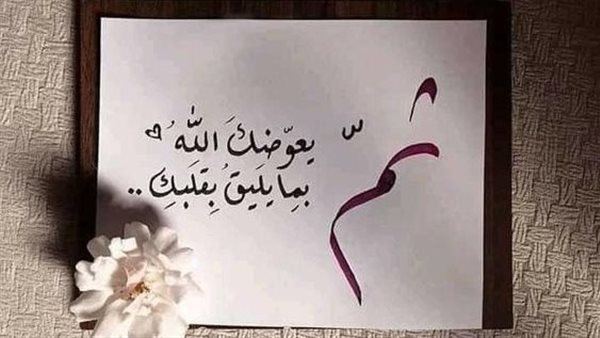 ثمّ
يعوّضكَ اللهُ
بمِا يَليقُ بِقلَبكِ ..